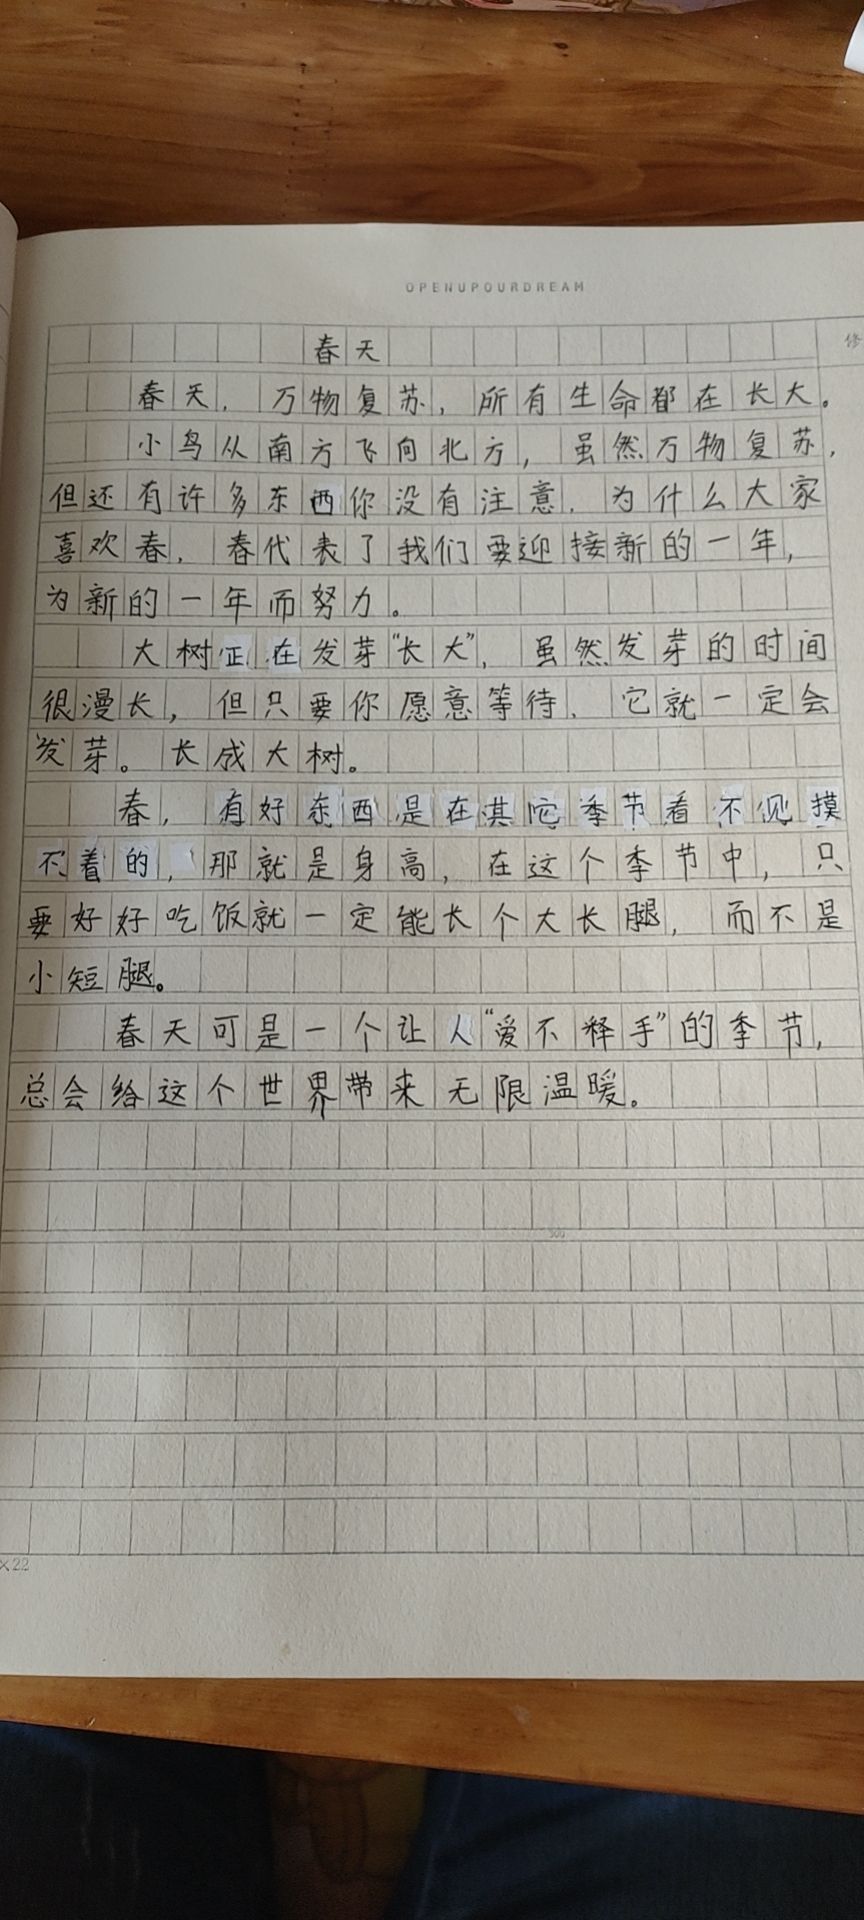 OPENUPOURDREAM
修
春天
春天，万物复苏，所有生命都在长大。
小鸟从南方飞向北方，虽然万物复苏，
但还有许多东西你没有注意，为什么大家
喜欢春，春代表了我们要迎接新的一年，
为新的一年而努力。
大树正在发芽“长大”，虽然发芽的时间
很漫长，但只要你愿意等待，它就一定会
发芽。长成大树。
春，有好东西是在其它季节看不见摸
不着的，那就是身高，在这个季节中，只
要好好吃饭就一定能长个大长腿，而不是
小短腿。
春天可是一个让人“爱不释手”的季节，
总会给这个世界带来无限温暖。
300
×22